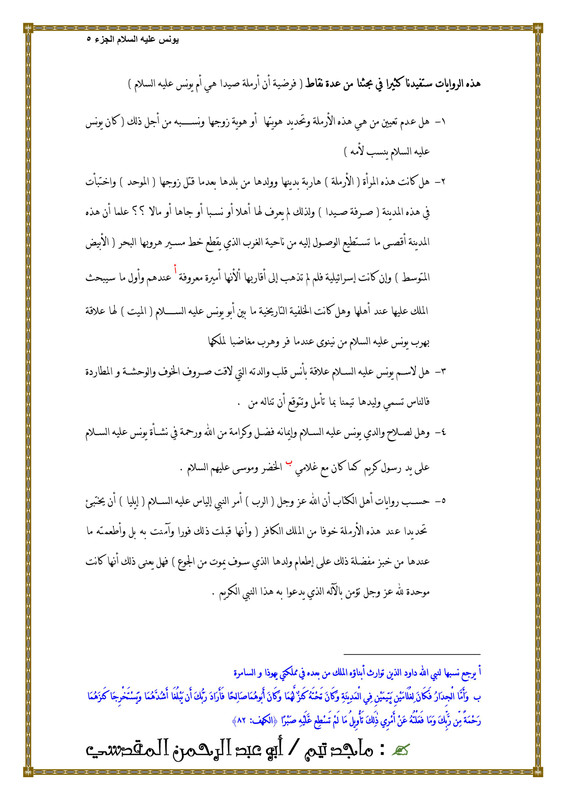 يونس عليه السلام الجزء ٥
هذه الروايات ستفيدنا كثيرا في بحثنا من عدة نقاط ( فرضية أن أرملة صيدا هي أم يونس عليه السلام )
١- هل عدم تعيين من هي هذه الأرملة وتحديد هويتها أو هوية زوجها ونسبه من أجل ذلك ( كان يونس
عليه السلام ينسب لأمه )
٢- هل كانت هذه المرأة ( الأرملة ) هاربة بدينها وولدها من بلدها بعدما قتل زوجها ( الموحد ) واختبأت
في هذه المدينة ( صرفة صيدا ) ولذلك لم يعرف لها أهلا أو نسبا أو جاها أو مالا ؟؟ علما أن هذه
المدينة أقصى ما تستطيع الوصول إليه من ناحية الغرب الذي يقطع خط مسير هروبها البحر ( الأبيض
المتوسط ) وإن كانت إسرائيلية فلم لم تذهب إلى أقاربها ألأنها أميرة معروفة أ عندهم وأول ما سيبحث
الملك عليها عند أهلها وهل كانت الخلفية التاريخية ما بين أبو يونس عليه السلام ( الميت ) لها علاقة
بهرب يونس عليه السلام من نينوى عندما فر وهرب مغاضبا لملكها
٣- هل لاسم يونس عليه السلام علاقة بأنس قلب والدته التي لاقت صروف الخوف والوحشة و المطاردة
فالناس تسمي وليدها تيمنا بما تأمل وتتوقع أن تناله من .
٤- وهل لصلاح والدي يونس عليه السلام وإيمانه فضل وكرامة من الله ورحمة في نشأة يونس عليه السلام
على يد رسول كريم كما كان مع غلامي ب الخضر وموسى عليهم السلام .
٥- حسب روايات أهل الكتاب أن الله عز وجل ( الرب ) أمر النبي إلياس عليه السلام ( إيليا ) أن يختبئ
تحديدا عند هذه الأرملة خوفا من الملك الكافر ( وأنها قبلت ذلك فورا وآمنت به بل وأطعمته ما
عندها من خبز مفضلة ذلك على إطعام ولدها الذي سوف يموت من الجوع ) فهل يعنى ذلك أنها كانت
موحدة لله عز وجل تؤمن بالآله الذي يدعوا به هذا النبي الكريم .
أ يرجع نسبها لنبي الله داود الذين توارث أبناؤه الملك من بعده في مملكتي يهوذا و السامرة
ب وَأَمَّا الْجِدَارُ فَكَانَ لِغُلَامَيْنِ يَتِيمَيْنِ فِي الْمَدِينَةِ وَكَانَ تَحْتَهُ كَنزٌ لَّهُمَا وَكَانَ أَبُوهُمَا صَالِحًا فَأَرَادَ رَبُّكَ أَن يَبْلُغَا أَشُدَّهُمَا وَيَسْتَخْرِجَا كَنزَهُمَا
رَحْمَةً مِّن رَّبِّكَ وَمَا فَعَلْتُهُ عَنْ أَمْرِي ذَلِكَ تَأْوِيلُ مَا لَمْ تَسْطِع عَّلَيْهِ صَبْرًا ﴿الكهف: ٨٢﴾
✍ : ماجد تيم / أبو عبد الرحمن المقدسي